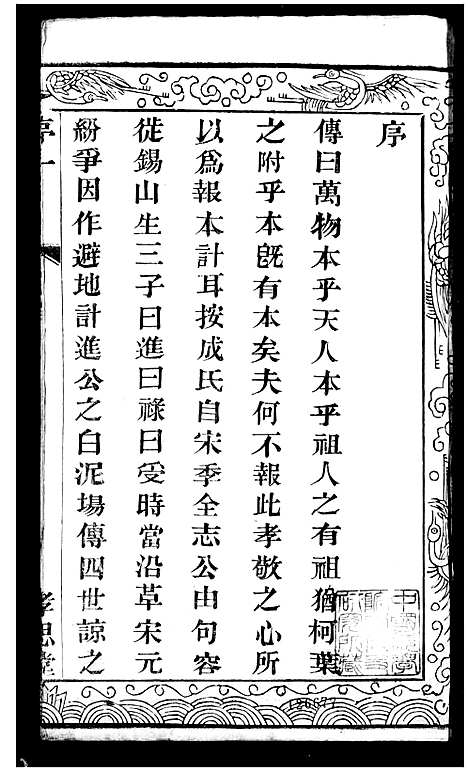 序
傳曰萬物本乎天人本乎祖人之有祖猶柯葉
之附乎本旣有本矣夫何不報此孝敬之心所
以爲報本計耳按成氏自宋季全志公由句容
徙錫山生三子曰進曰祿曰受時當沿草宋元
紛爭因作避地計進公之白泥場傳四世諒之
序一
孝思堂
126877